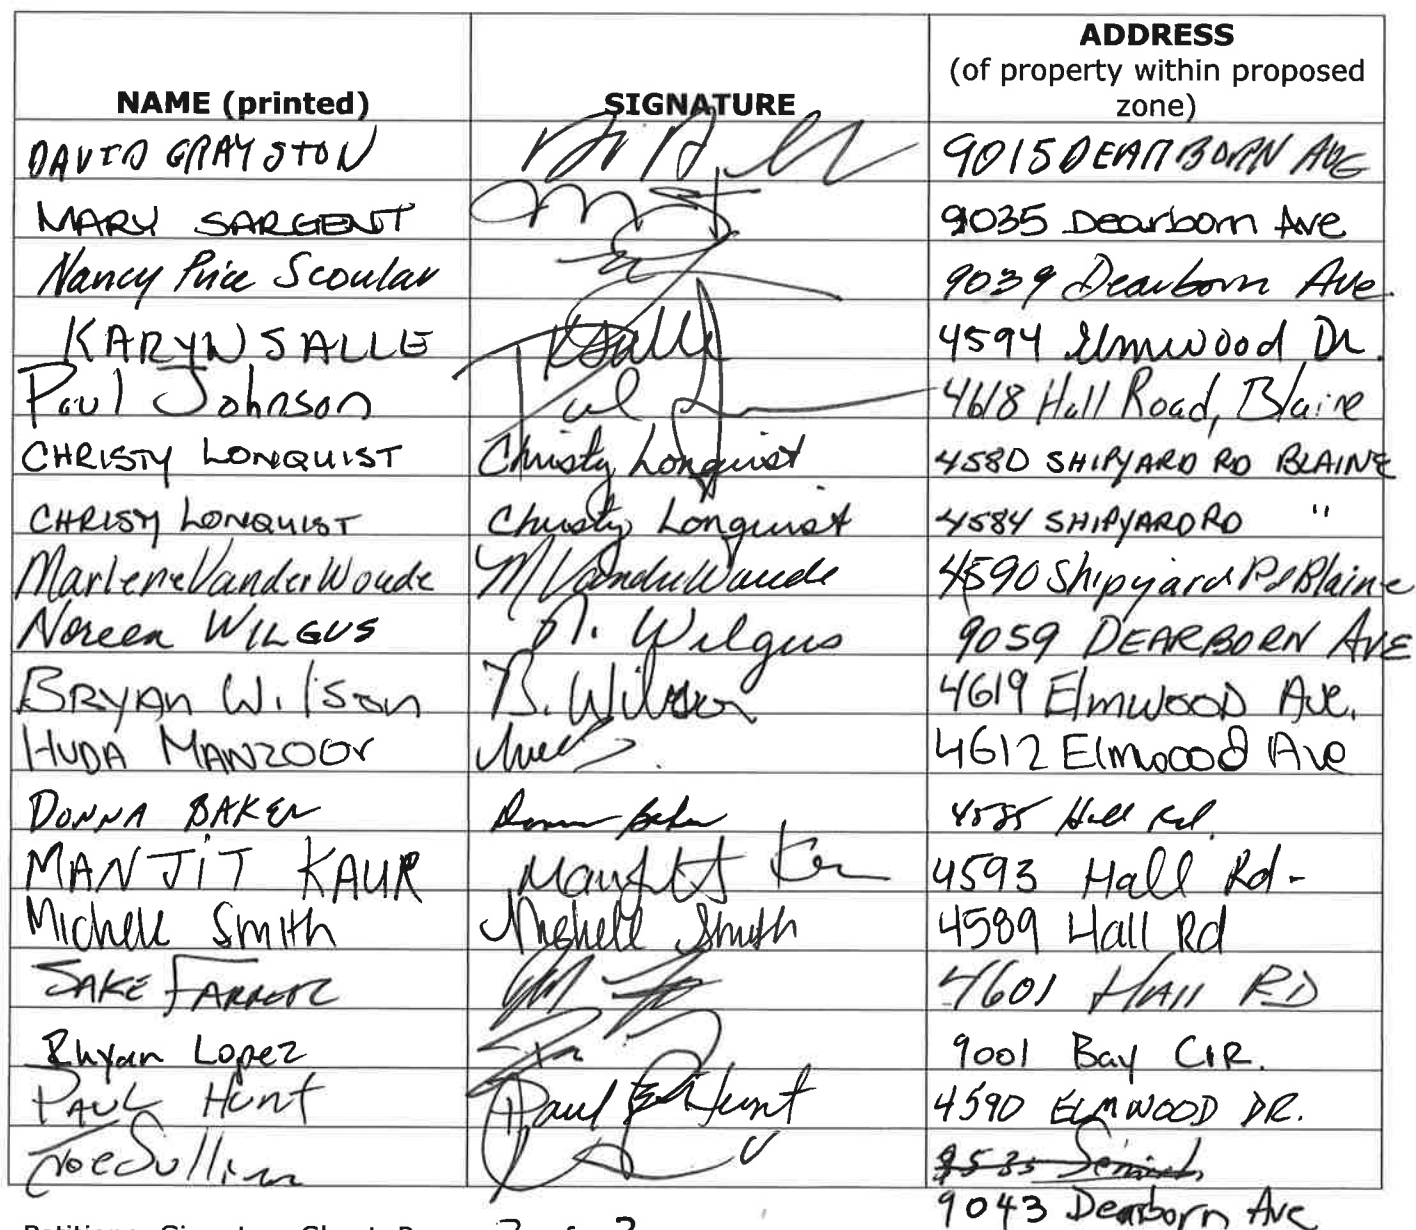 NAME (printed) SIGNATURE ADDRESS
(of property within proposed
zone)
DAVID GRAYSTON 9015 DEARBORN AVE
MARY SARGENT 9035 Dearborn Ave
Nancy Price Scoular 9039 Dearborn Ave.
KARYN SALLE KSalle 4594 Elmwood Dr.
Paul Johnson Paul 4618 Hall Road, Blaine
CHRISTY LONQUIST Christy Lonquist 4580 SHIPYARD RD BLAINE
CHRISY LONQUIST Christy Lonquist 4584 SHIPYARD RD "
Marlene VanderWoude M VanderWoude 4590 Shipyard Rd Blaine
Noreen WILGUS N. Wilgus 9059 DEARBORN AVE
BRYAN Wilson B. Wilson 4619 ElmWOOD Ave.
HUDA MANZOOr 4612 Elmwood Ave
DONNA BAKER Donna Baker 4585 Hall Rd.
MANJIT KAUR Manjit Kaur 4593 Hall Rd-
Michell Smith Michell Smith 4589 Hall Rd
JAKE FARRER 4601 HAll RD
Rhyan Lopez 9001 Bay CIR.
PAUL Hunt Paul Hunt 4590 ELMWOOD DR.
Joe Sullivan
9043 Dearborn Ave